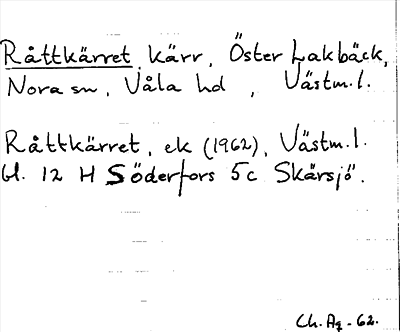 Råttkärret, kärr, Öster Lakbäck,
Nora sn, Våla hd, Västm.l.
Råttkärret, ek (1962), Västm.l.
bl. 12 H Söderfors 5c Skärsjö.
Ch. Ag. -62.